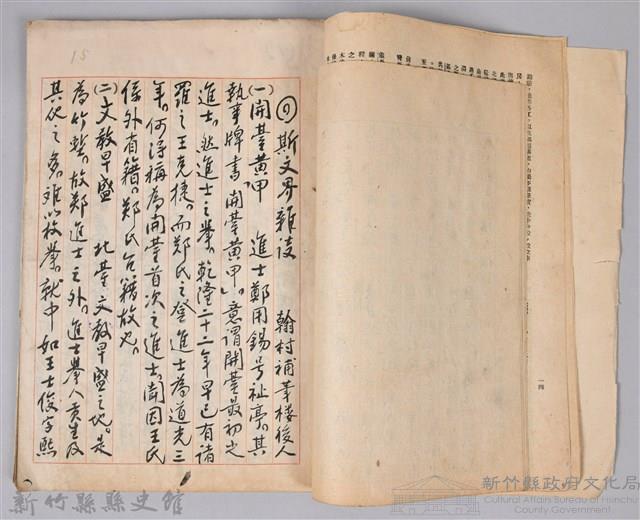 15
◎斯文界雜談　翰村補華樓後人
(一)開臺黃甲　進士鄭用錫号祉亭。其
執事牌書「開臺黃甲」。意謂開臺最初之
進士。然進士之舉。乾隆二十二年早已有諸
羅之王克捷。而鄭氏之登進士為道光三
年。何得稱為開臺首次之進士。蓋因王氏
係外省籍。鄭氏台籍故也。
(二)文教早盛　北臺文教早盛之地。是
為竹塹。故鄭進士之外。進士舉人貢生及
其他之多。難以枚舉。就中如王士俊字熙
一四
新竹縣縣史館
新竹縣政府文化局
Cultural Affairs Bureau of Hsinchu
County Government